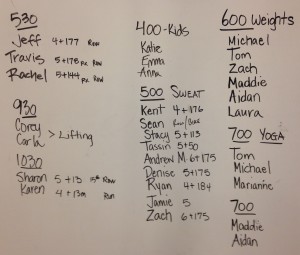 530
Jeff 4+177 Row
Travis 5+175 Rx Row
Rachel 5+144 Rx Row
930
Corey
Carla > Lifting
1030
Sharon 5+13 Row
Karen 4+13m Run
400-Kids
Katie
Emma
Anna
500 SWEAT
Kent 4+176
Sean Row/Bike
Stacy 5+113
Tassin 5+50
Andrew M 6+175
Denise 5+175
Ryan 4+184
Jamie 5
Zach 6+175
600 Weights
Michael
Tom
Zach
Maddie
Aidan
Laura
700 YOGA
Tom
Michael
Marianne
700
Maddie
Aidan